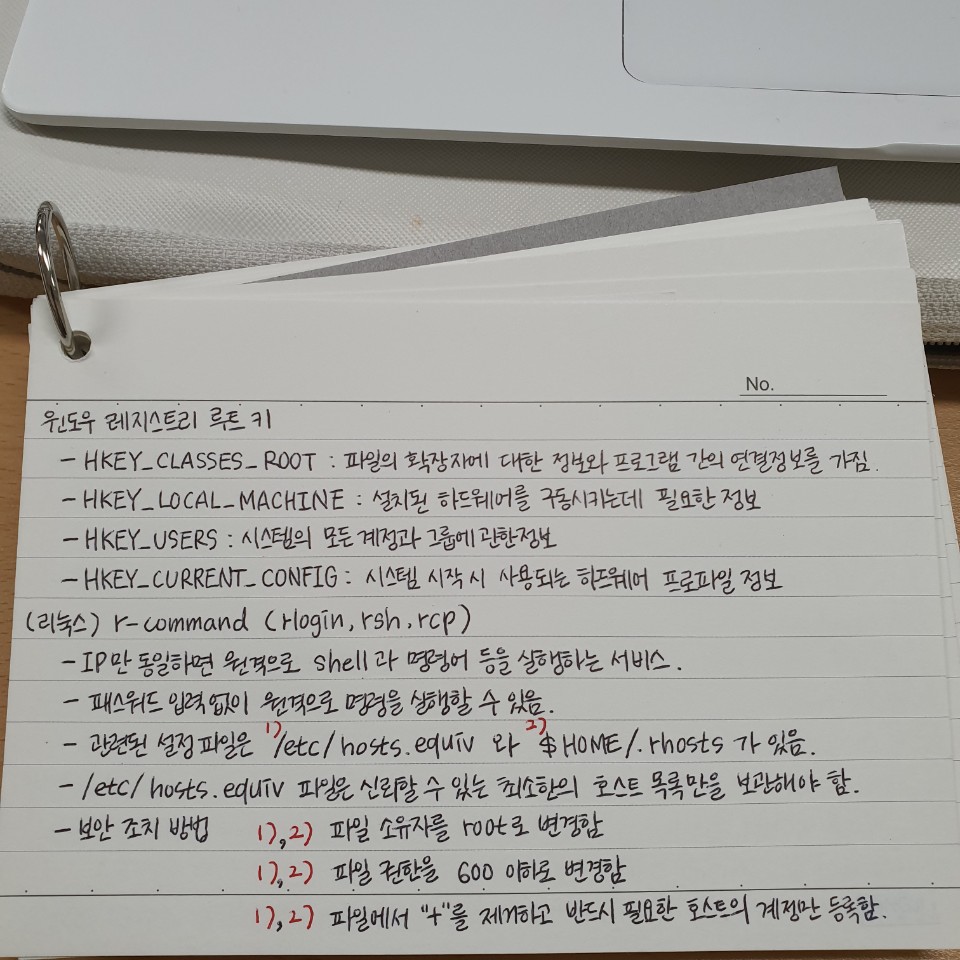 No.
윈도우 레지스트리 루트 키
- HKEY_CLASSES_ROOT : 파일의 확장자에 대한 정보와 프로그램 간의 연결정보를 가짐.
- HKEY_LOCAL_MACHINE : 설치된 하드웨어를 구동시키는데 필요한 정보
- HKEY_USERS : 시스템의 모든 계정과 그룹에 관한정보
- HKEY_CURRENT_CONFIG : 시스템 시작 시 사용되는 하드웨어 프로파일 정보
(리눅스) r-command (rlogin, rsh, rcp)
- IP만 동일하면 원격으로 shell과 명령어 등을 실행하는 서비스.
- 패스워드 입력없이 원격으로 명령을 실행할 수 있음.
- 관련된 설정파일은 1) /etc/hosts.equiv 와 2) $HOME/.rhosts 가 있음.
- /etc/hosts.equiv 파일은 신뢰할 수 있는 최소한의 호스트 목록만을 보관해야 함.
- 보안 조치 방법 1), 2) 파일 소유자를 root로 변경함
1), 2) 파일 권한을 600 이하로 변경함
1), 2) 파일에서 "+"를 제거하고 반드시 필요한 호스트의 계정만 등록함.